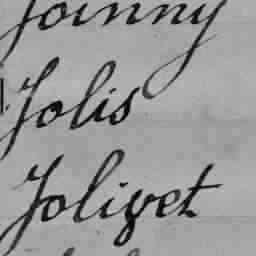 Joinny
Jolis
Jolivet